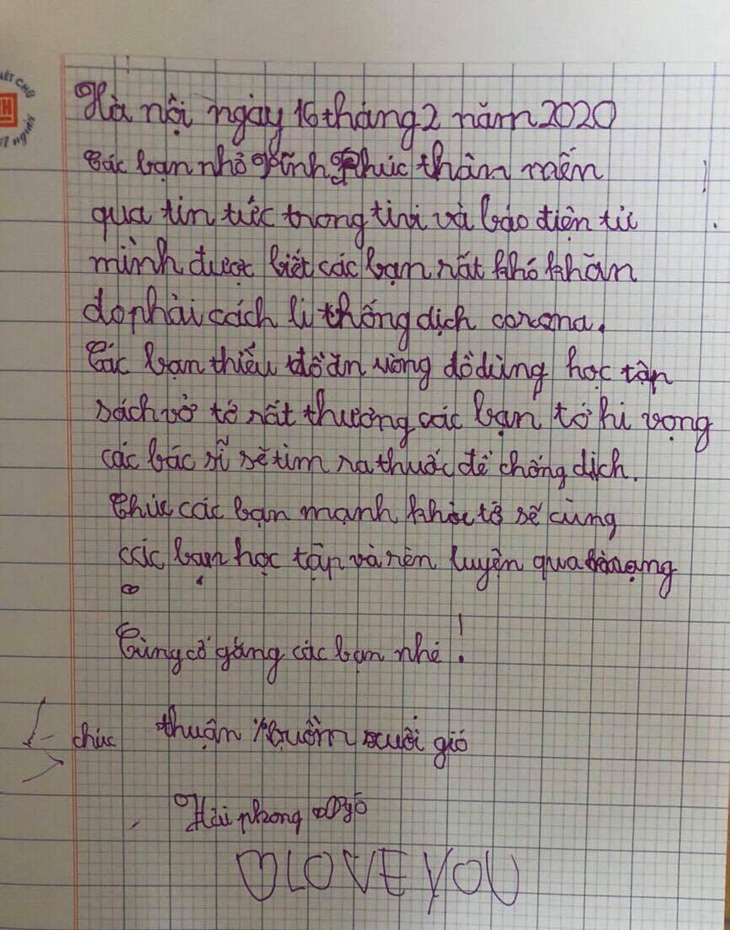 Hà nội ngày 16 tháng 2 năm 2020
Các bạn nhỏ Vĩnh Phúc thân mến
qua tin tức trong tivi và báo điện tử
mình được biết các bạn rất khó khăn
do phải cách li chống dịch corona.
Các bạn thiếu đồ ăn uống đồ dùng học tập
sách vở tớ rất thương các bạn tớ hi vọng
các bác sĩ sẽ tìm ra thuốc để chống dịch.
Chúc các bạn mạnh khỏe tớ sẽ cùng
các bạn học tập và rèn luyện qua mạng
Cùng cố gắng các bạn nhé!
chúc thuận buồm xuôi gió
Hải phong
LOVE YOU